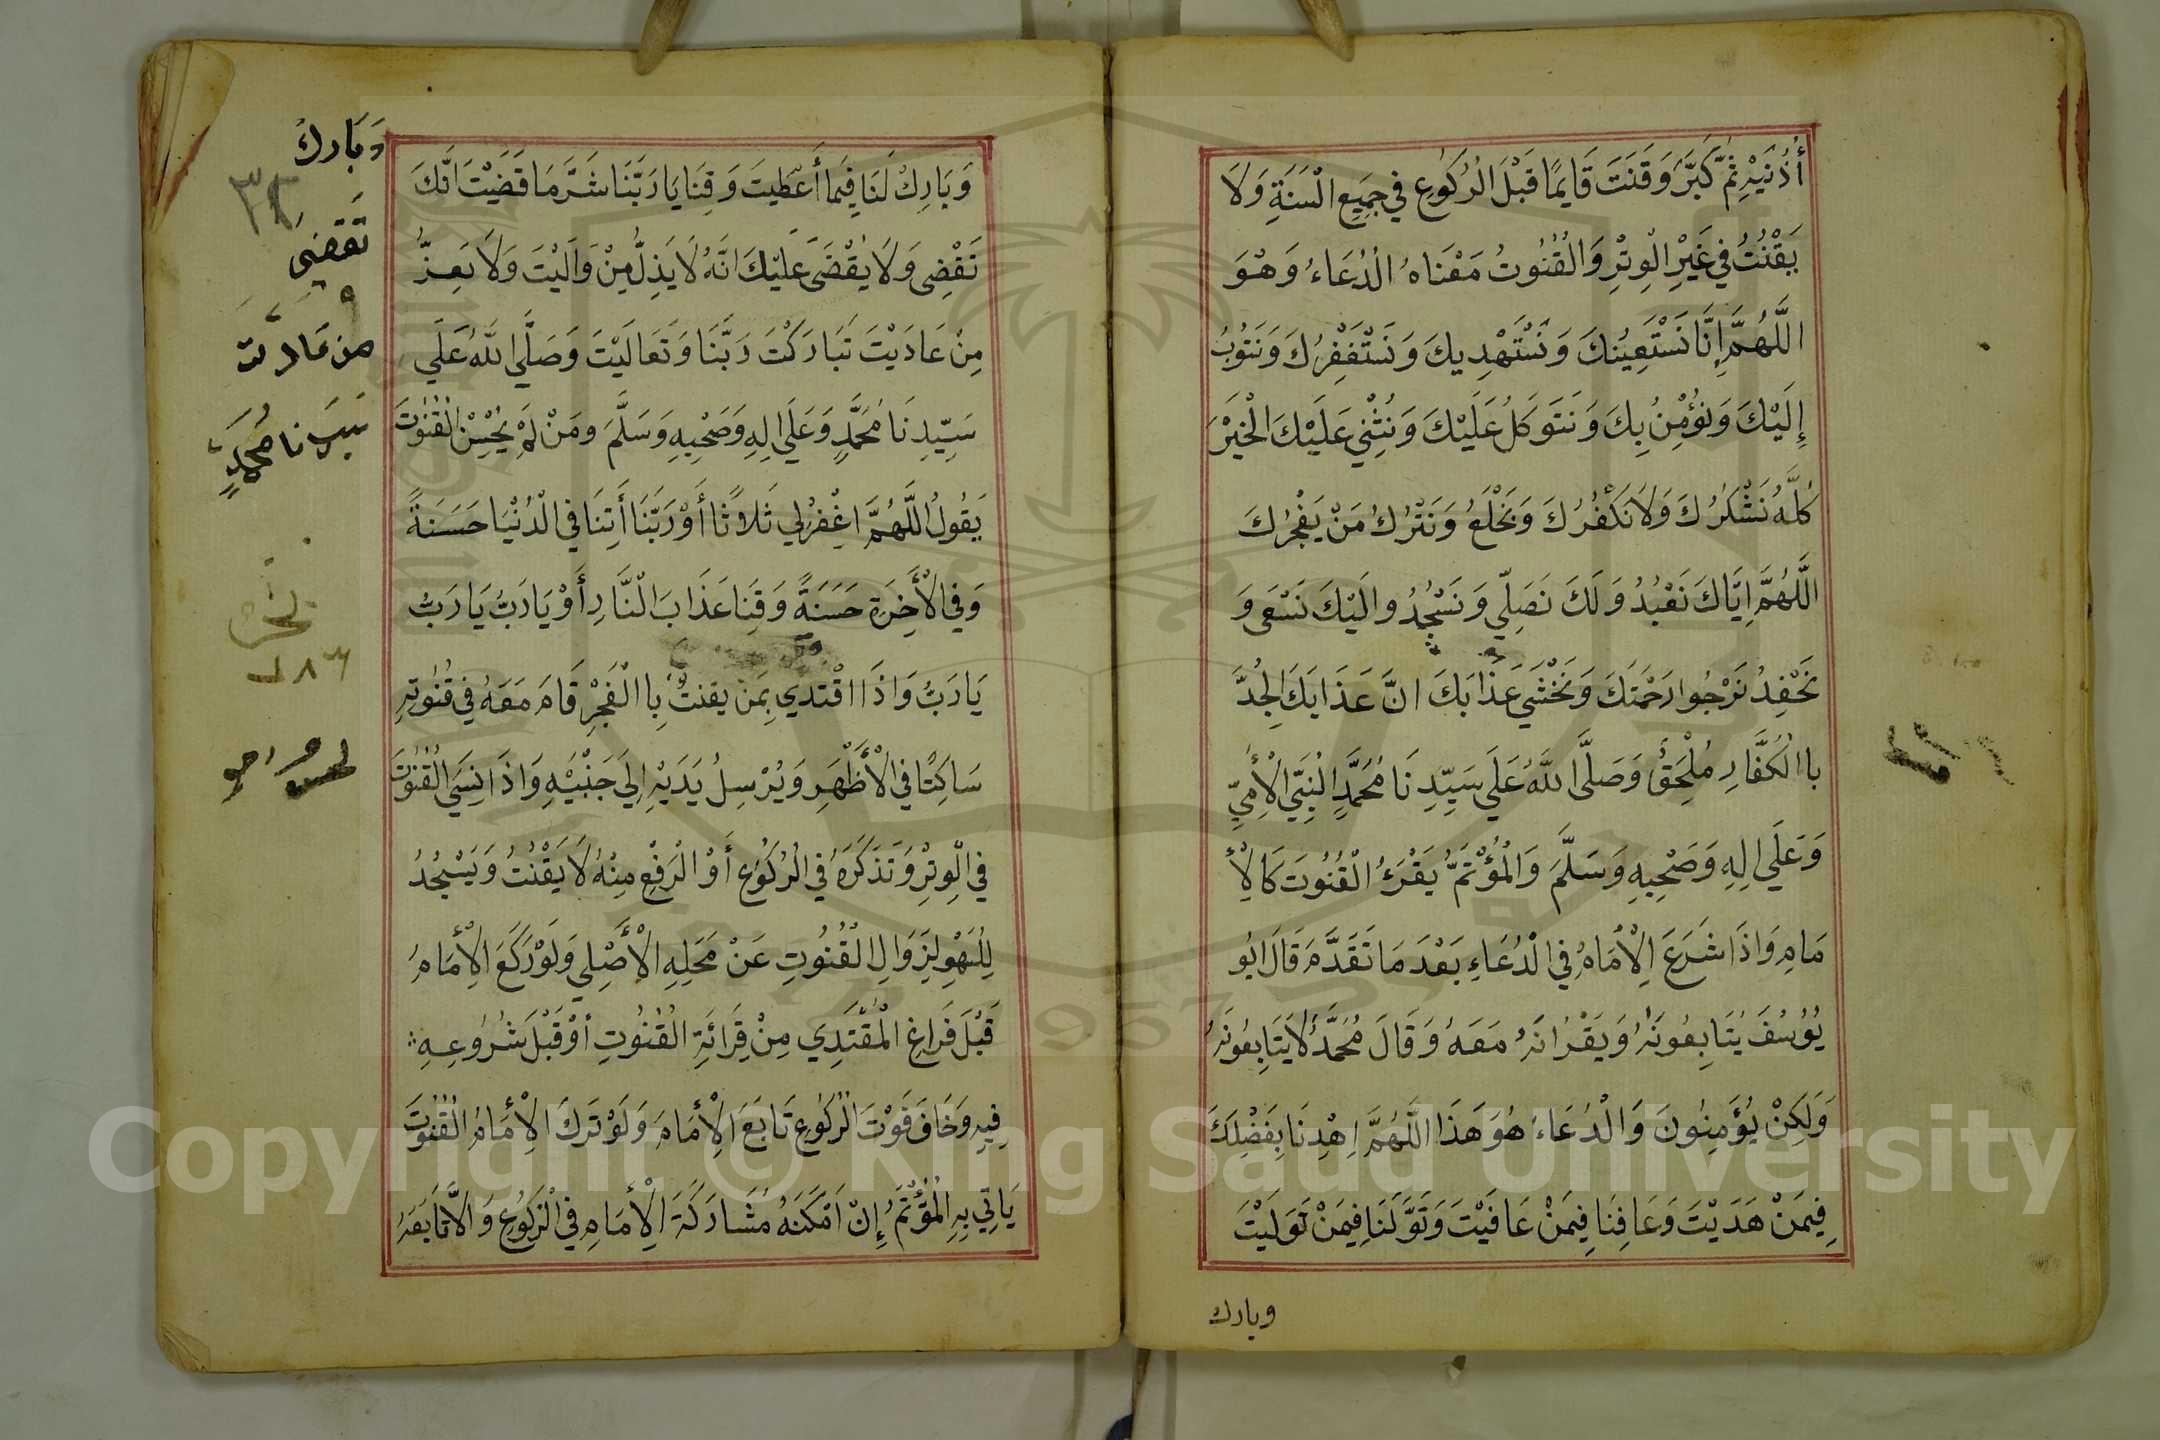 أُذُنَيْهِ ثُمَّ كَبَّرَ وَقَنَتَ قَايِمًا قَبْلَ الرُكُوعِ فِي جَمِيعِ الْسَنَةِ وَلَا
يَقْنُتُ فِي غَيْرِ الْوِتْرِ وَالْقُنُوتُ مَعْنَاهُ الْدُعَاءُ وَهْوَ
اللَّهُمَّ إِنَّا نَسْتَعِينُكَ وَنَسْتَهْدِيكَ وَنَسْتَغْفِرُكَ وَنَتُوبُ
إِلَيْكَ وَنُؤْمِنُ بِكَ وَنَتَوَكَلُ عَلَيْكَ وَنُثْنِي عَلَيْكَ الْخَيْرَ
كُلَّهُ نَشْكُرُكَ وَلَا نَكْفُرُكَ وَنَخْلَعُ وَنَتْرُكُ مَنْ يَفْجُرُكَ
اللَّهُمَّ اِيَّاكَ نَعْبُدُ وَلَكَ نَصَلِّي وَنَسْجُدُ وَالَيْكَ نَسْعَى وَ
نَحْفِدُ نَرْجُوا رَحْمَتَكَ وَنَخْشَي عَذَابَكَ انَّ عَذَابَكَ الْجِدَّ
باالْكُفَّارِ مُلْحِقٌ وَصَلَّى اللَّهُ عَلَي سَيِّدِنَا مُحَمَّدٍ النَّبِيِّ الْأُمِيِّ
وَعَلَي الِهِ وَصَحْبِهِ وَسَلَّمَ وَالْمُؤْتَمُّ يَقْرَءُ الْقُنُوتَ كَالْأِ
مَامِ وَاذَا شَرَعَ الْأِمَامُ فِي الْدُعَاءِ بَعْدَ مَا تَقَدَّمَ قَالَ ابُو
يُوسُفَ يُتَابِعُونَهُ وَيَقْرَانَهُ مَعَهُ وَقَالَ مُحَمَّدٌ لَا يَتَابِعُونَهُ
وَلَكِنْ يُؤَمِنُونَ وَالْدُعَاءُ هُوَ هَذَا اللَّهُمَّ اِهْدِنَا بِفَضْلِكَ
فِيمَنْ هَدَيْتَ وَعَافِنَا فِيمَنْ عَافَيْتَ وَتَوَّلَنَا فِيمَنْ تَوَلَيْتَ
وبارك
وَبَارِكْ لَنَا فِيَما أَعْطَيتَ وَقِنَا يَا رَبَّنَا شَرَّ مَا قَضَيْتَ انَّكَ
تَقْضِى وَلَا يُقْضَى عَلَيْكَ انَّهُ لَا يَذِلُّ مِنْ وَالَيْتَ وَلَا يَعِزُّ
مِنْ عَادَيْتَ تَبَارَكْتَ رَبَّنَا وَتَعَالَيْتَ وَصَلَّي اللَّهُ عَلَي
سَيِّدِنَا مُحَمَّدٍ وَعَلَي الِهِ وَصَحْبِهِ وَسَلَّمَ وَمَنْ لَمْ يُحْسِنْ الْقُنُوتَ
يَقُولُ اللَّهُمَّ اغْفِرْلِي ثَلَاثًا أَوْ رَبَّنَا أَتِنَا فِي الْدُنْيَا حَسَنَةً
وَفِي الْأَخِرَةِ حَسَنَةً وَقِنَا عَذَابَ الْنَّارِ أَوْ يَا رَبُّ يَا رَبُّ
يَا رَبُّ وَاذَا اقْتَدَي بِمَنْ يقنتُ بِاالْفَجِرْ قَامَ مَعَهُ فِي قُنُوتِهِ
سَاكِتًا فِي الْأَظْهَرِ وَيُرْسِلُ يَدَيْهِ اِلَي جَنْبَيْهِ وَاذَا نِسَيَ الْقُنُوتَ
فِي الْوِتِرْ وَتَذَكَرَهُ فِي الْرُكُوعِ أَوْ الْرَفْعِ مِنْهُ لَا يَقْنُتُ وَيَسْجُدُ
لِلْسَهْوِ لِزَوَالِ الْقُنُوتِ عَنْ مَحَلِهِ الْأَصْلِي وَلَوْ رَكَعَ الْأِمَامُ
قَبْلَ فَرَاغِ الْمُقْتَدِي مِنْ قِرَائَةِ الْقُنُوتِ أوْ قَبْلَ شُرُوعِهِ
فِيهِ وَخَافَ فَوْتَ الْرُكُوعِ تَابَعَ الْأِمَامَ وَلَوْ تَرَكَ الْأِمَامُ الْقُنُوتَ
يَاتِي بِهِ الْمُؤْتَمُ إِنْ اَمْكَنَهُ مُشَارَكَةَ الْأِمَامِ فِي الْرُكُوعِ وَالَّا تَابَعَهُ
وَبَارك
٣٢
تَقضِيَ
من عَاديت
سيدنا مُحَمَدٍ
Copyright © King Saud University
1957